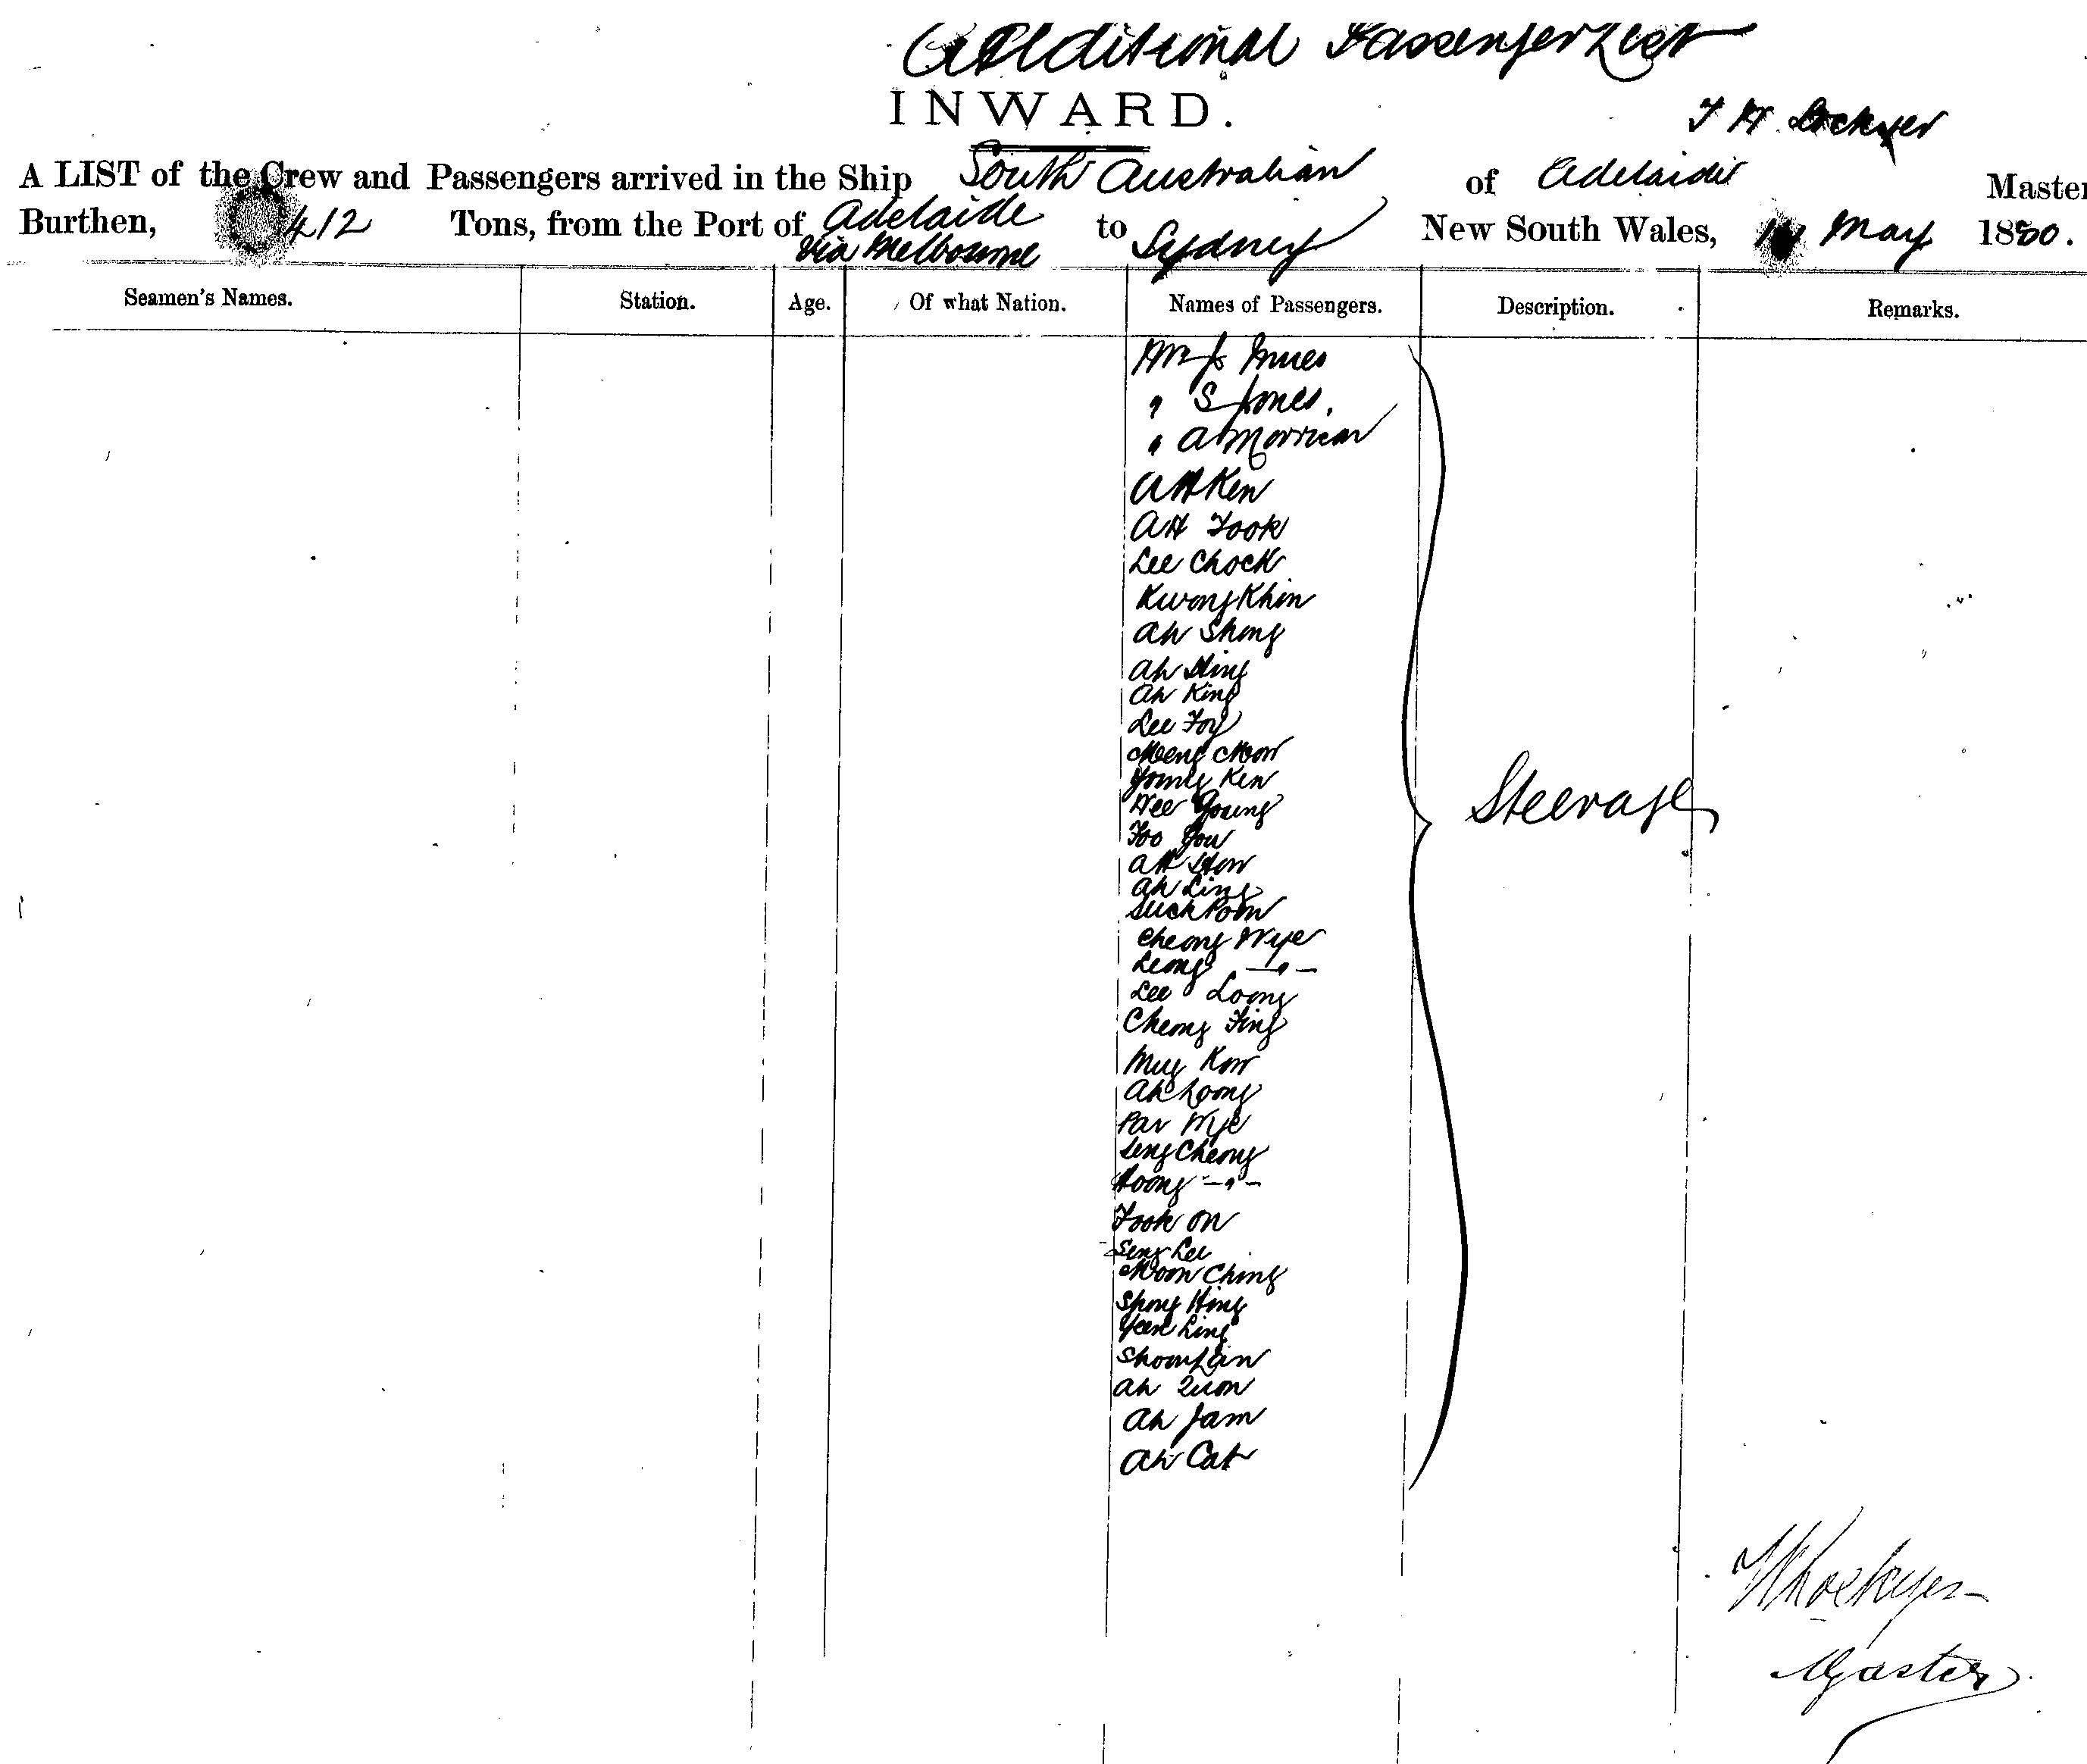 Additional Passenger List
INWARD.
T H Lockyer
A LIST of the Crew and Passengers arrived in the Ship South Australian of Adelaide Master
Burthen, 412 Tons, from the Port of Adelaide to Sydney New South Wales, May 1880.
via Melbourne
Seamen's Names. Station. Age. Of what Nation. Names of Passengers. Description. Remarks.
Mr J Innes
" S Jones,
" A Morrison
AH Ken
AH Fook
Lee Chock
Kwong Khin
Ah Shong
Ah Hing
Ah King
Lee Foy
Meng Mow
Young Ken
Wee Young
Steerage
Foo You
AH How
Ah Ling
Suck Poon
Cheong Wye
Leong —"—
Lee Loong
Cheong Fing
Muy Kow
Ah Loong
Pav Wye
Leng Cheong
Hoong —"—
Fook On
Seng Lee
Moon Ching
Shong Hing
Yeen Ling
Ah Quon
Ah Jam
Ah Cat
T H Lockyer
Master